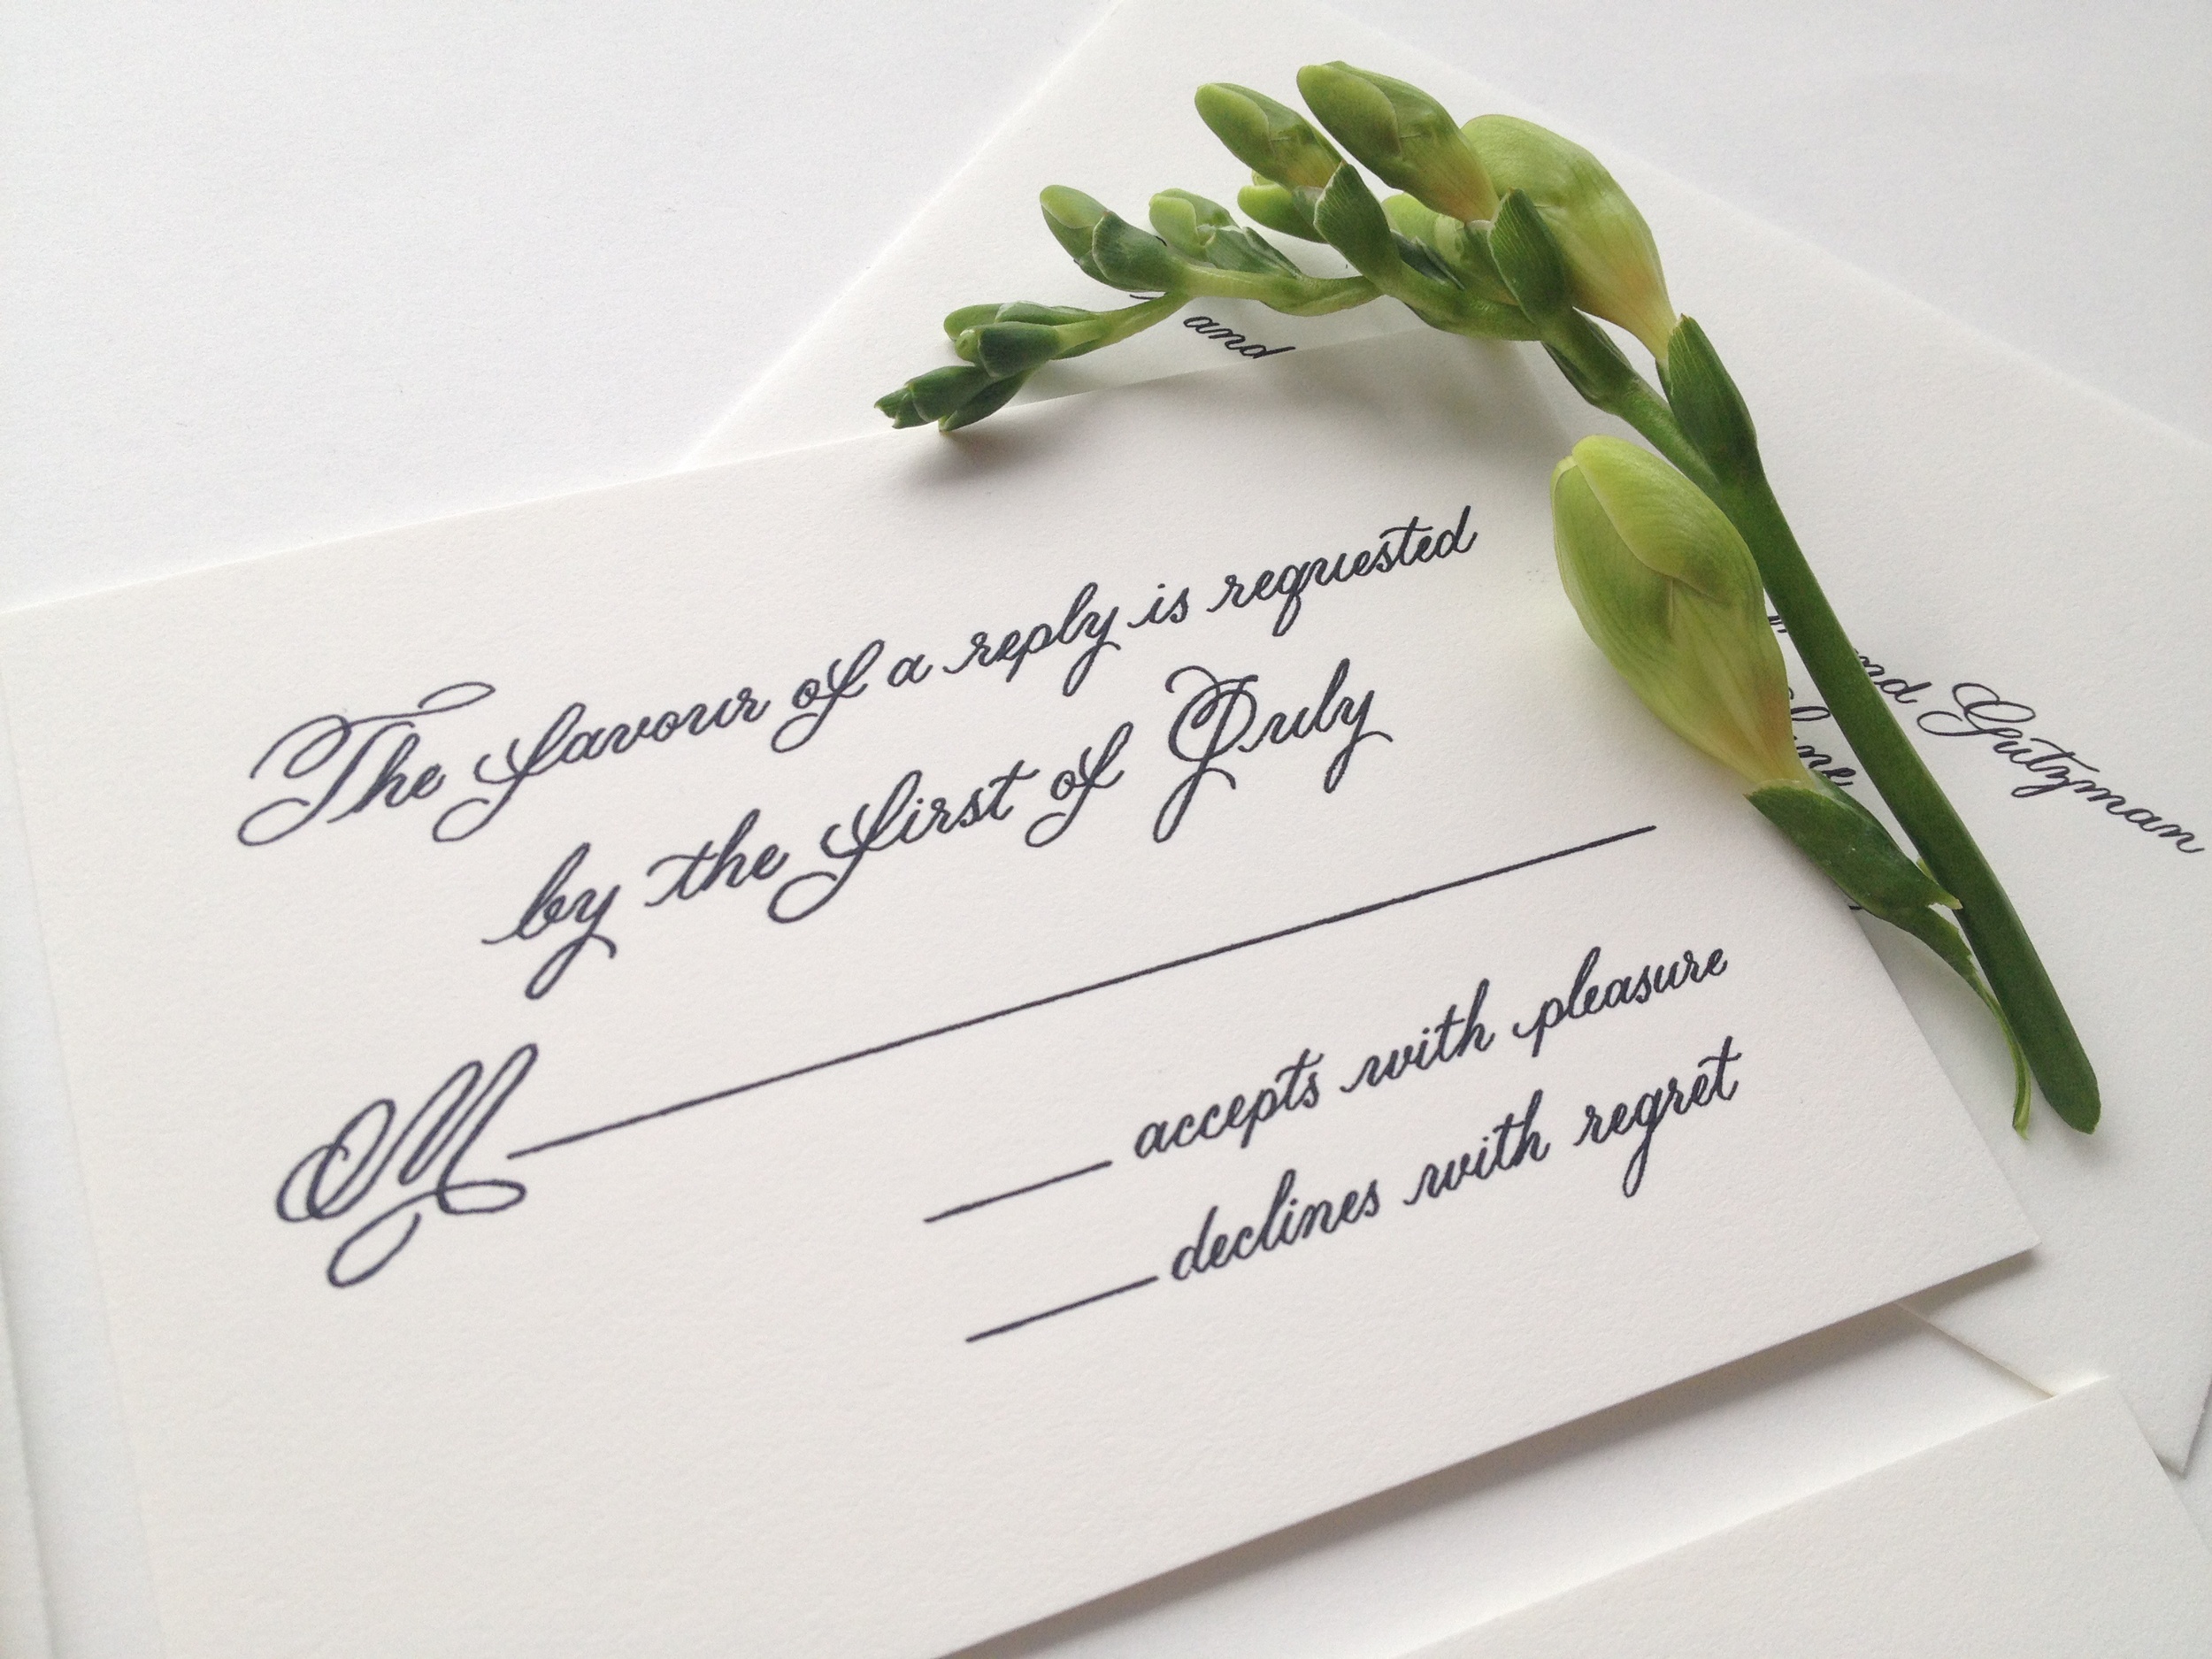 The favour of a reply is requested
by the first of July
M
accepts with pleasure
declines with regret
and
Gutzman